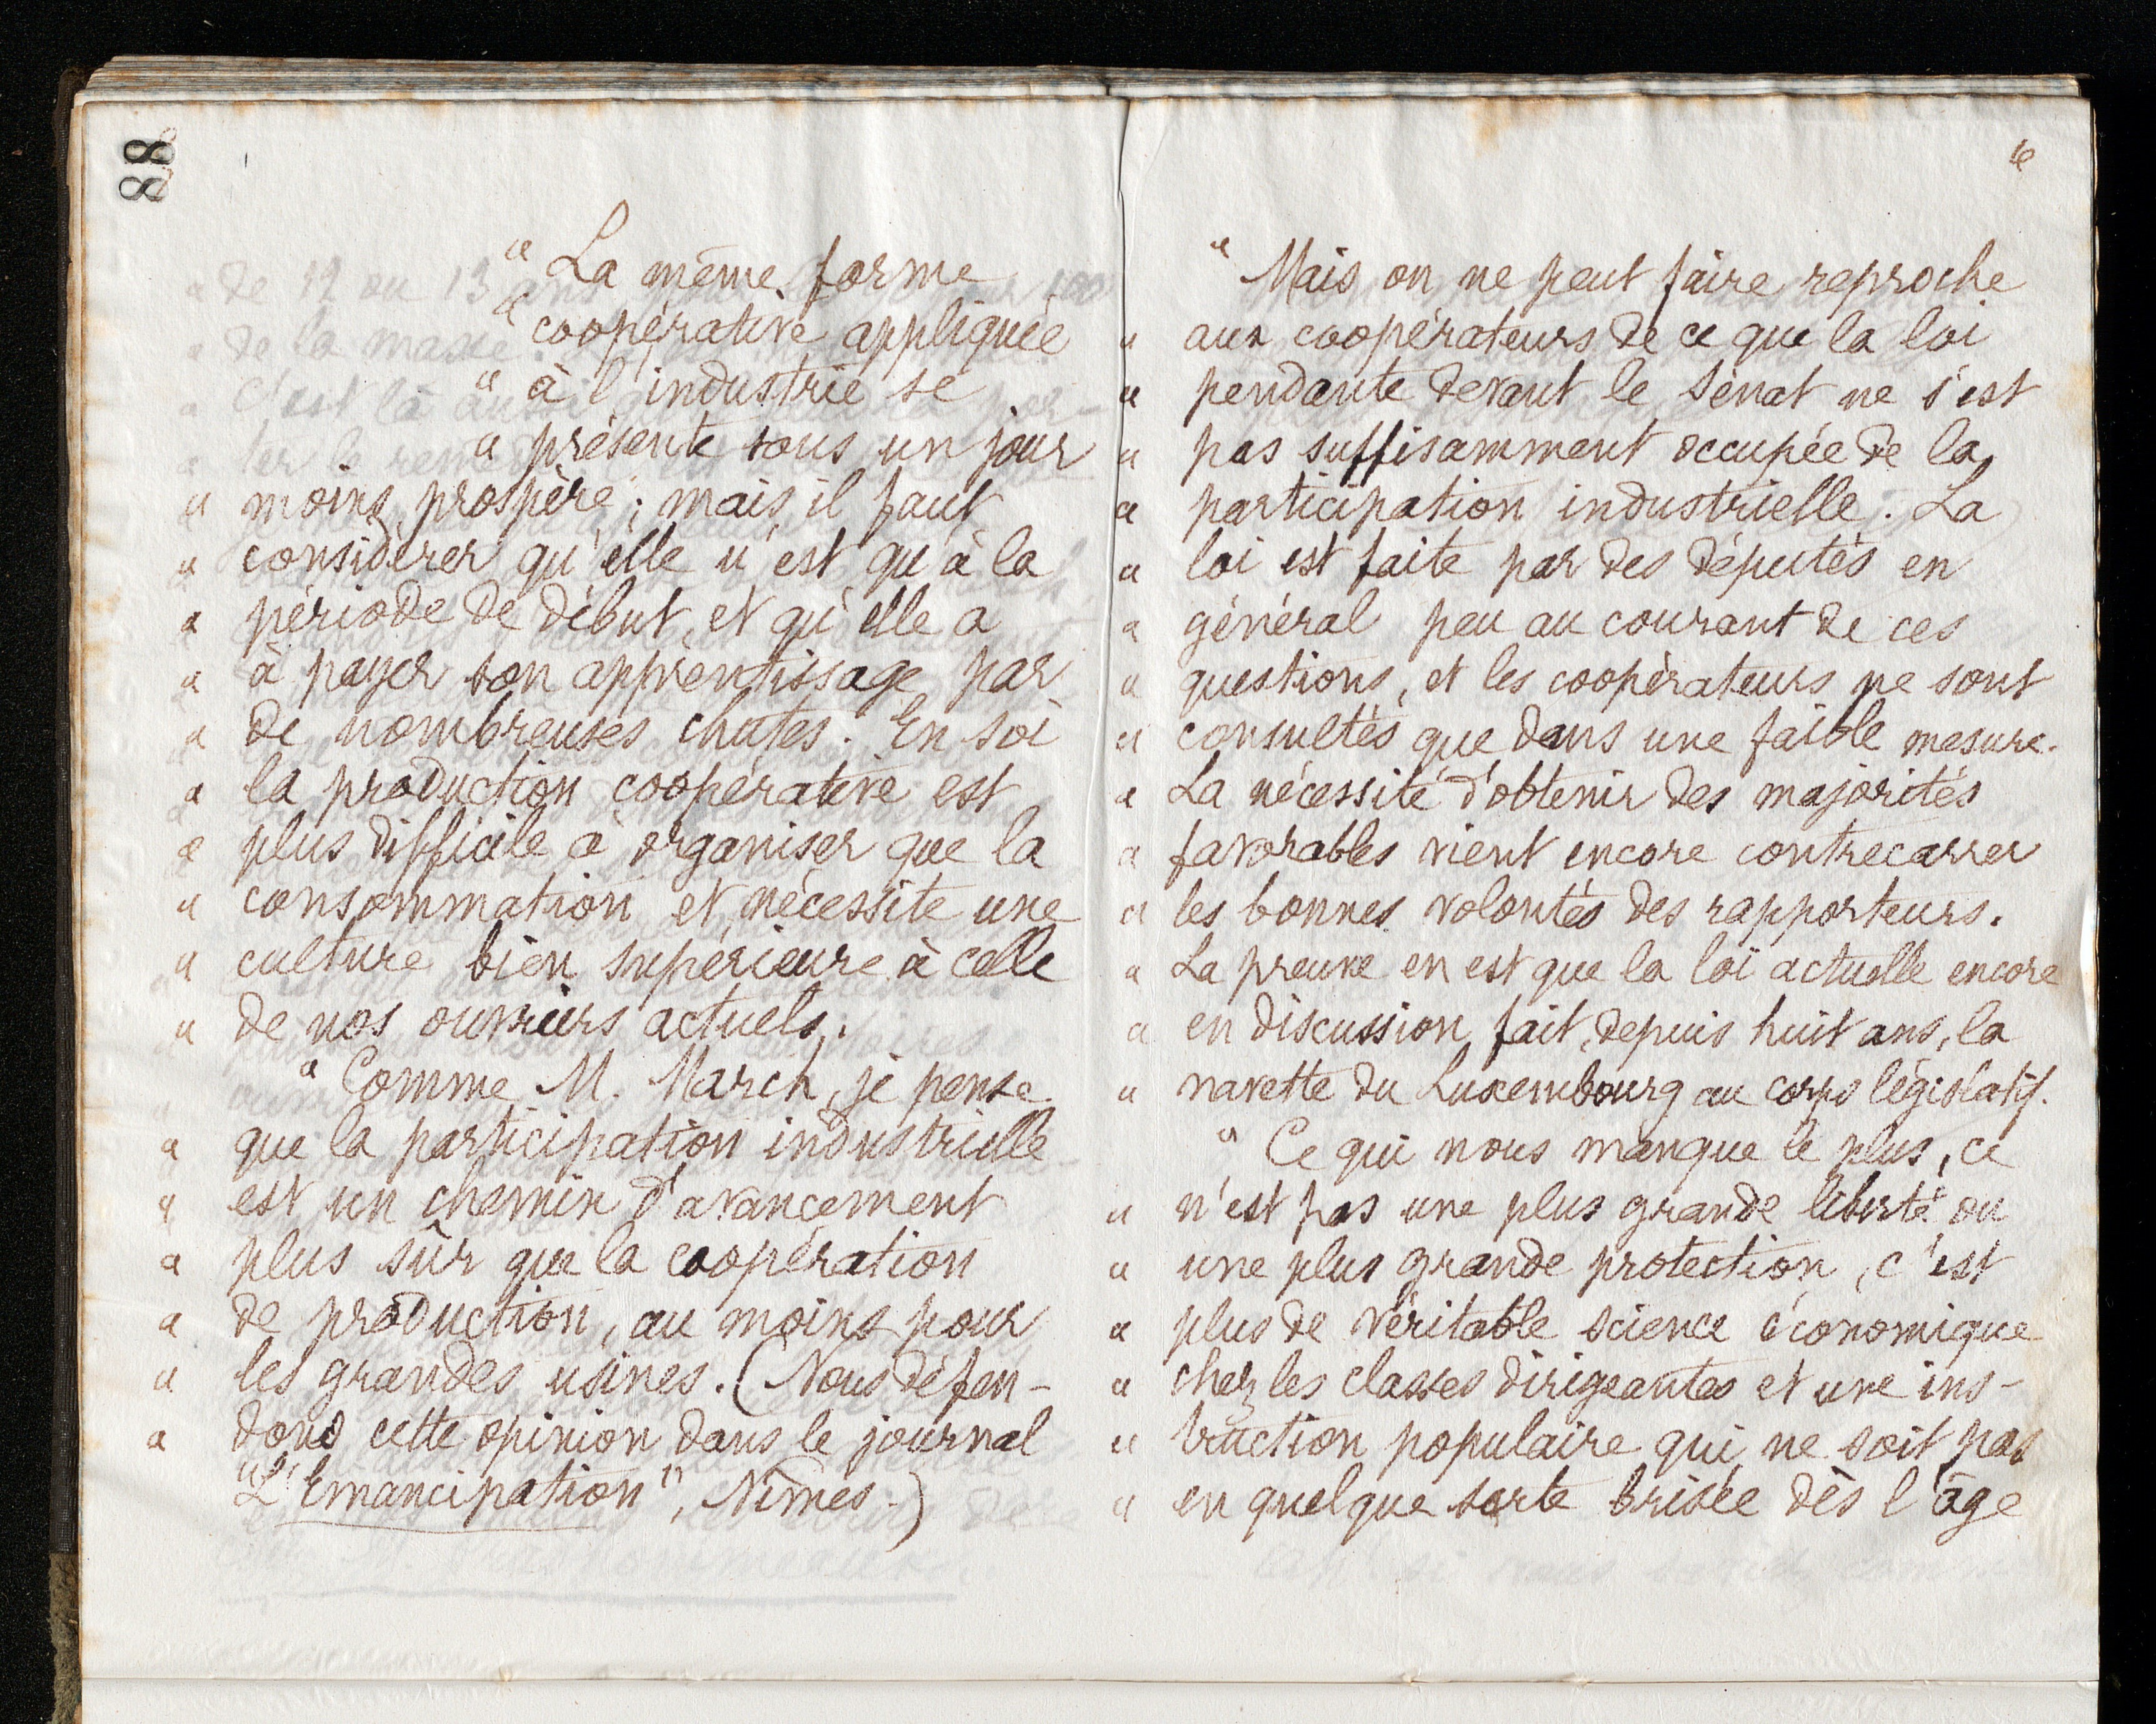 88
“ La même forme
“ coopérative appliquée
“ à l'industrie se
“ présente sous un jour
“ moins prospère ; mais il faut
“ considérer qu'elle n'est qu'à la
“ période de début, et qu'elle a
“ à payer son apprentissage par
“ de nombreuses chutes. En soi
“ la production coopérative est
“ plus difficile à organiser que la
“ consommation et nécessite une
“ culture bien supérieure à celle
“ de nos ouvriers actuels.
“ Comme M. March, je pense
“ que la participation industrielle
“ est un chemin d'avancement
“ plus sûr que la coopération
“ de production, au moins pour
“ les grandes usines. (Nous défen-
“ dons cette opinion dans le journal
“L'Emancipation”, Nîmes.)
“ Mais on ne peut faire reproche
“ aux coopérateurs de ce que la loi
“ pendante devant le Sénat ne s'est
“ pas suffisamment occupée de la
“ participation industrielle. La
“ loi est faite par des députés en
“ général peu au courant de ces
“ questions, et les coopérateurs ne sont
“ consultés que dans une faible mesure.
“ La nécessité d'obtenir des majorités
“ favorables vient encore contrecarrer
“ les bonnes volontés des rapporteurs.
“ La preuve en est que la loi actuelle encore
“ en discussion fait, depuis huit ans, la
“ navette du Luxembourg au corps législatif.
“ Ce qui nous manque le plus, ce
“ n'est pas une plus grande liberté ou
“ une plus grande protection, c'est
“ plus de véritable science économique
“ chez les classes dirigeantes et une ins-
“ truction populaire qui ne soit pas
“ en quelque sorte brisée dès l'âge